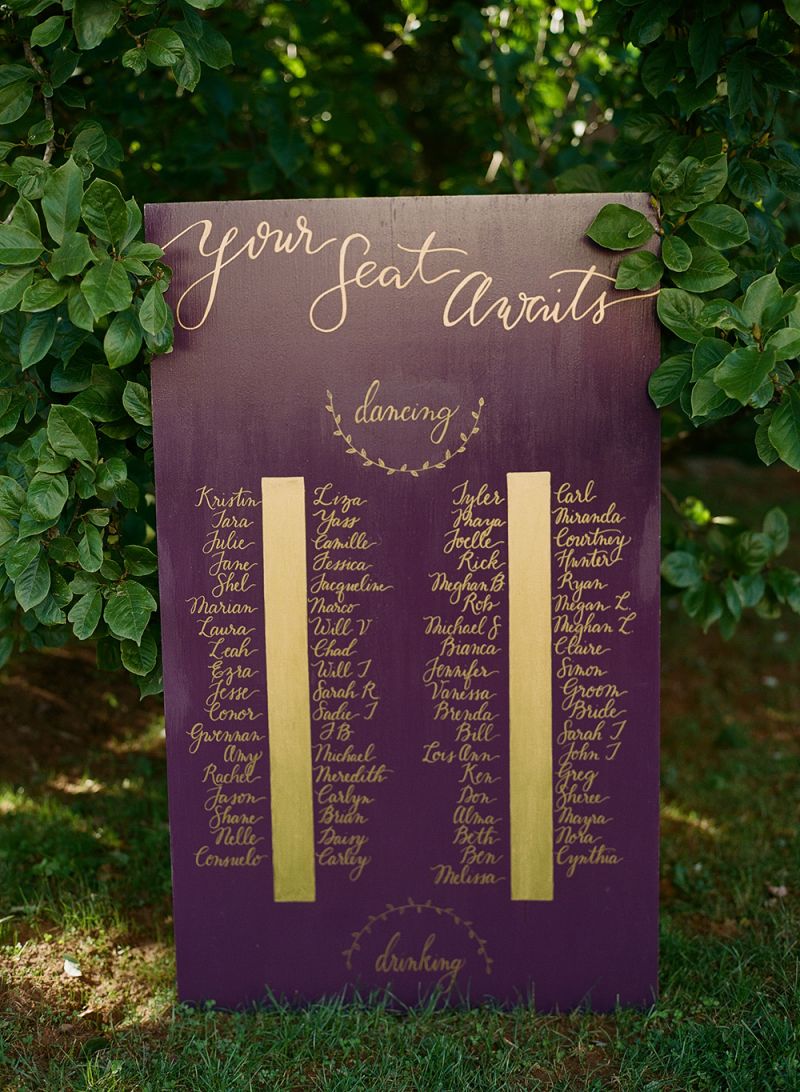 Your Seat Awaits
dancing
Kristin
Tara
Julie
Jane
Shel
Marian
Laura
Leah
Ezra
Jesse
Conor
Gwennan
Amy
Rachel
Jason
Shane
Nelle
Consuelo
Liza
Yass
Camille
Jessica
Jacqueline
Marco
Will V
Chad
Will T
Sarah R
Sadie T
JB
Michael
Meredith
Carlyn
Brian
Daisy
Carley
Tyler
Joelle
Rick
Meghan B.
Rob
Michael S
Bianca
Jennifer
Vanessa
Brenda
Bill
Lois Ann
Ken
Don
Alma
Beth
Ben
Melissa
Carl
Miranda
Courtney
Hunter
Ryan
Megan L.
Meghan L.
Claire
Simon
Groom
Bride
Sarah T
John T
Greg
Sheree
Mayra
Nora
Cynthia
drinking